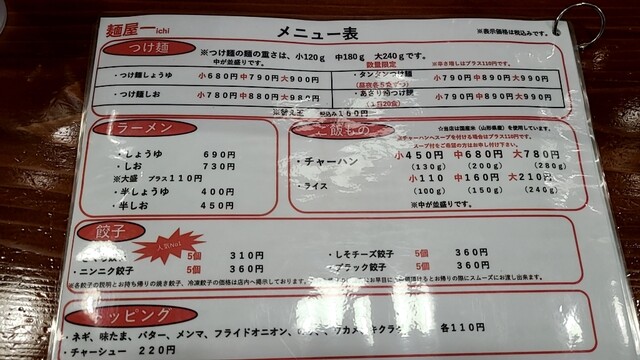 麺屋一ichi
メニュー表
※表示価格は税込みです。
つけ麺
※つけ麺の麺の重さは、小120g 中180g 大240gです。
中が並盛りです。
数量限定
※辛さ増しはプラス110円です。
・つけ麺しょうゆ 小680円 中790円 大900円
・タンタンつけ麺 小790円 中890円 大990円
・つけ麺しお 小780円 中880円 大980円
・あさり つけ麺 小790円 中890円 大990円
(1日20食)
※替え玉 税込み150円
ラーメン
・しょうゆ 690円
・しお 730円
※大盛 プラス110円
・半しょうゆ 400円
・半しお 450円
ご飯もの
☆当店は国産米(山形県産)を使用しています。
※チャーハンへスープを付ける場合はプラス110円です。
スープ付をご希望の方はお申し付け下さい。
・チャーハン 小450円 中680円 大780円
(130g) (200g) (280g)
・ライス 小110 中160円 大210円
(100g) (150g) (240g)
※中が並盛です。
餃子
人気No1
餃子 5個 310円
・しそチーズ餃子 5個 360円
・ニンニク餃子 5個 360円
・ブラック餃子 5個 360円
※各餃子の説明とお持ち帰りの焼き餃子、冷凍餃子の価格は店内へ掲示しております。
頂けるとお帰りの際にスムーズにお渡し出来ます。
トッピング
・ネギ、味たま、バター、メンマ、フライドオニオン、 ワカメ、キクラゲ 各110円
・チャーシュー 220円